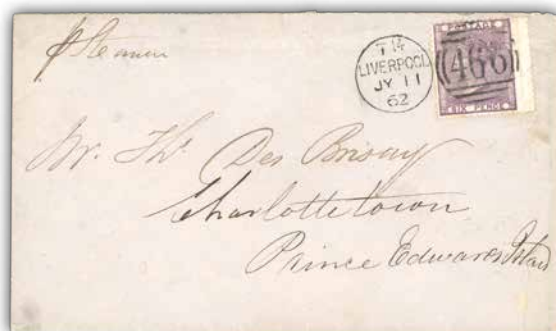 p Steamer
T 14
LIVERPOOL
JY 11
62
POSTAGE
466
SIX PENCE
Mr. Thos Des Brisay
Charlottetown
Prince Edwards Island